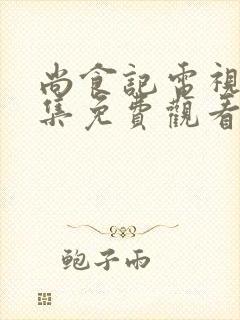 尚食記電視
集免費觀看
鲍子雨